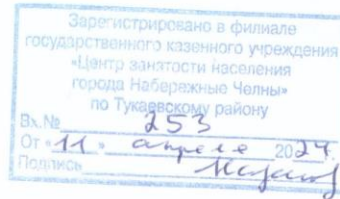 Зарегистрировано в филиале
государственного казенного учреждения
«Центр занятости населения
города Набережные Челны»
по Тукаевскому району
Вх.№ 253
От «11» апреля 2024г.
Подпись